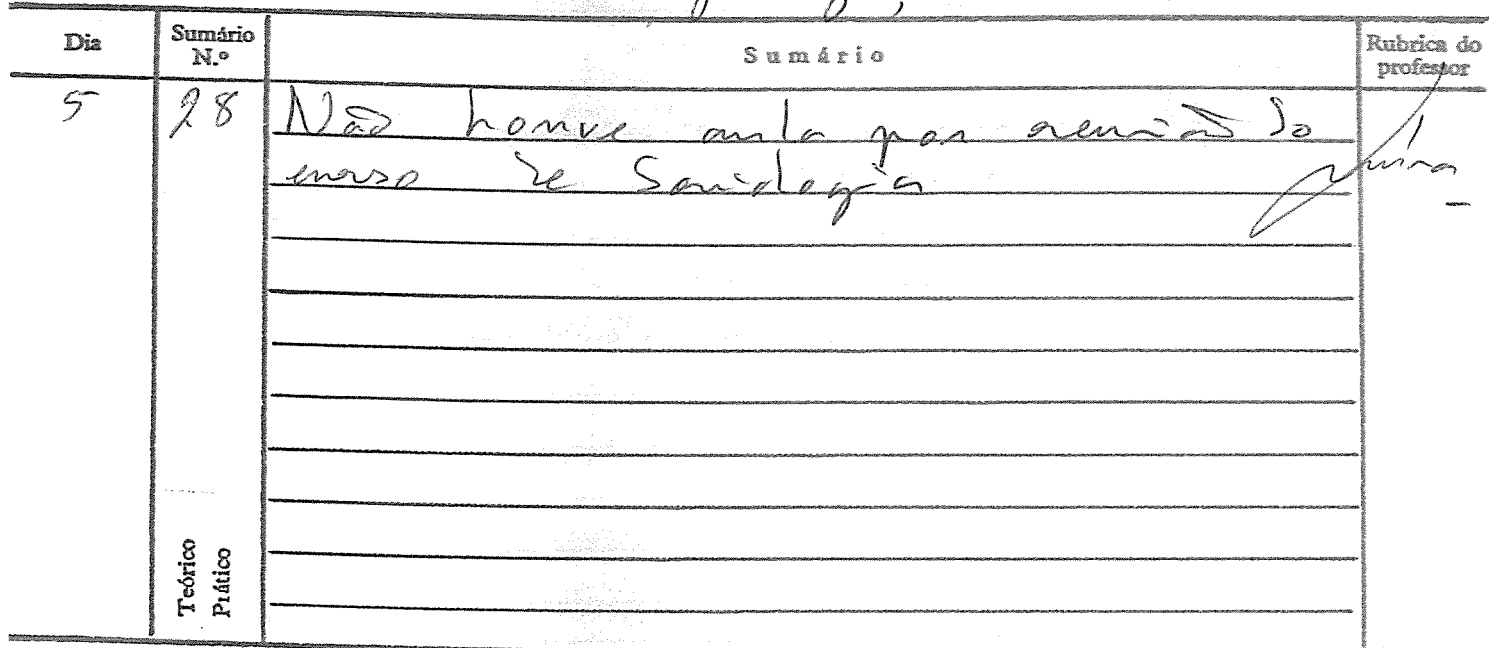 Dia
Sumário N.º
Sumário
Rubrica do professor
5
28
Não houve aula por reunião do
curso de Sociologia
Teórico
Prático